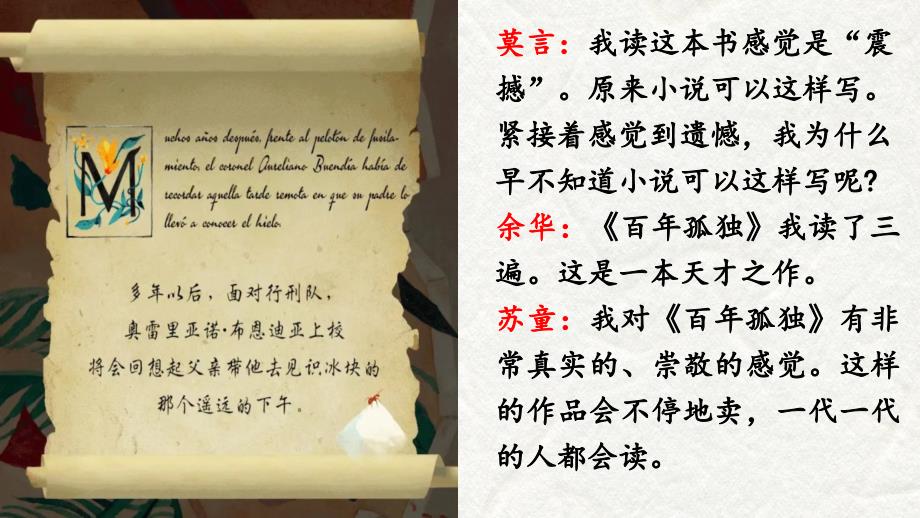 Muchos años después, frente al pelotón de fusila-
miento, el coronel Aureliano Buendía había de
recordar aquella tarde remota en que su padre lo
llevó a conocer el hielo.
多年以后，面对行刑队，
奥雷里亚诺·布恩迪亚上校
将会回想起父亲带他去见识冰块的
那个遥远的下午。
莫言：我读这本书感觉是“震
撼”。原来小说可以这样写。
紧接着感觉到遗憾，我为什么
早不知道小说可以这样写呢?
余华：《百年孤独》我读了三
遍。这是一本天才之作。
苏童：我对《百年孤独》有非
常真实的、崇敬的感觉。这样
的作品会不停地卖，一代一代
的人都会读。